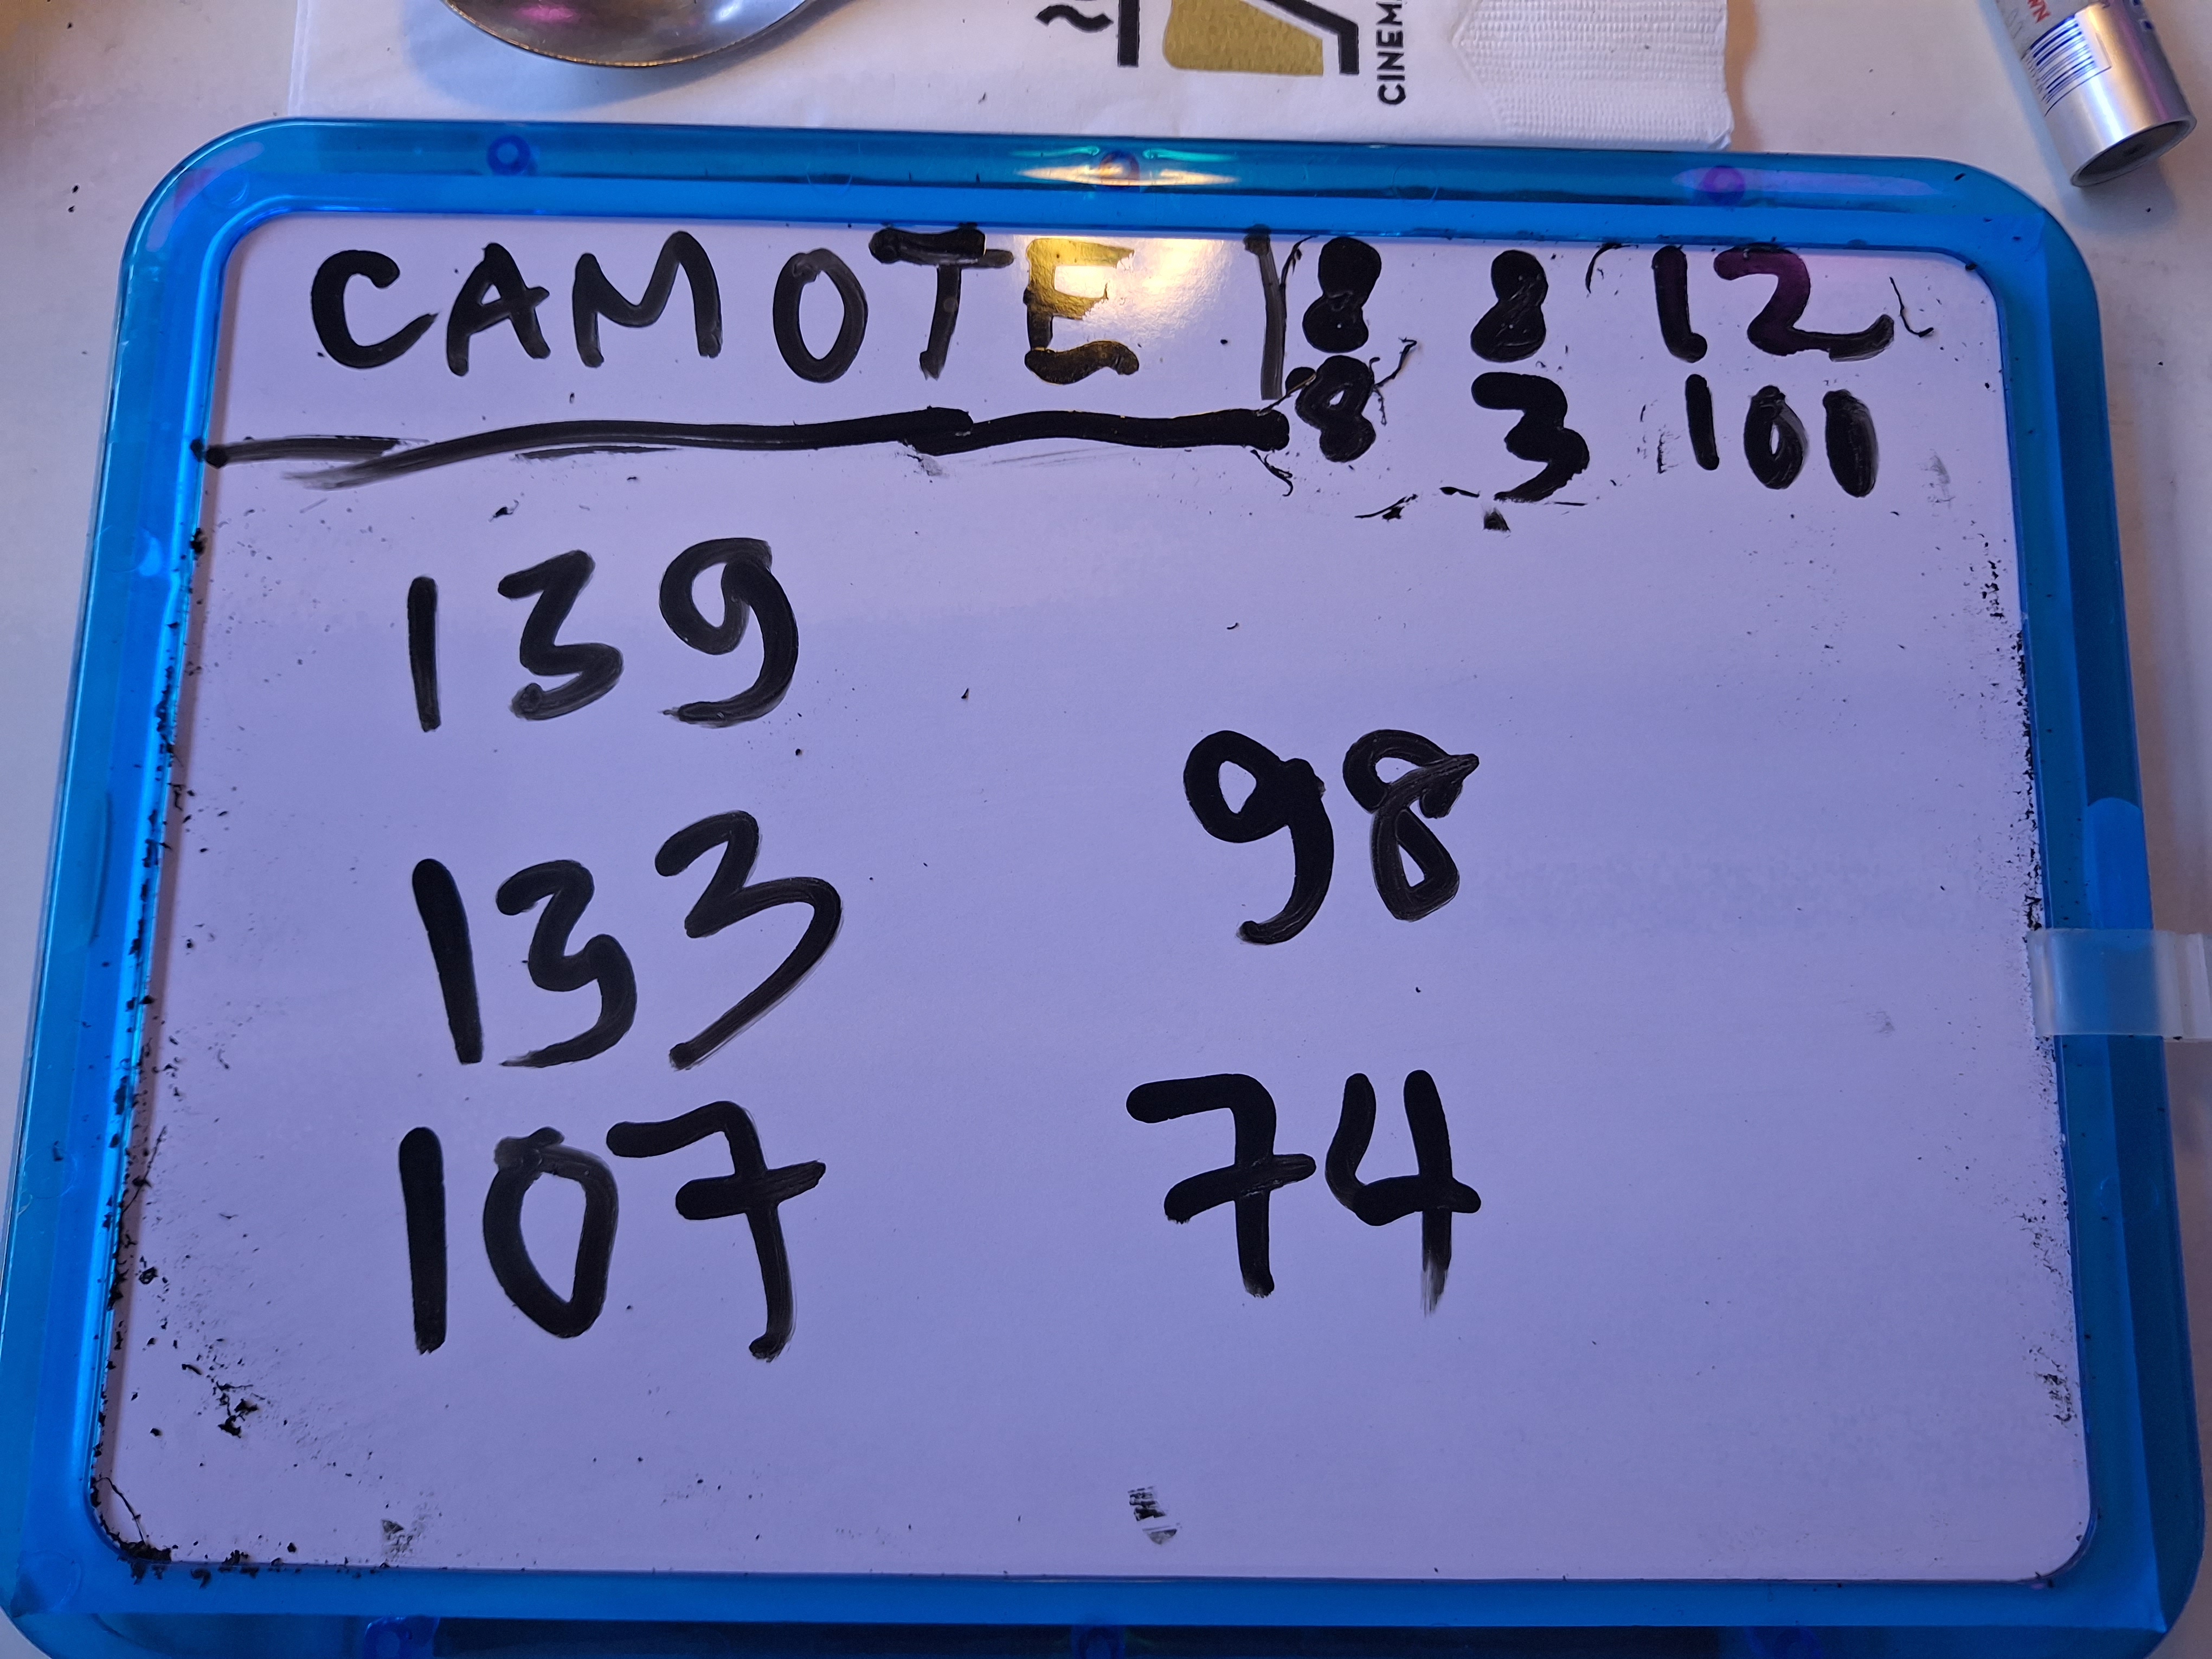 CINEM
CAMOTE 8 8 12
8 3 100
139
98
133
74
107